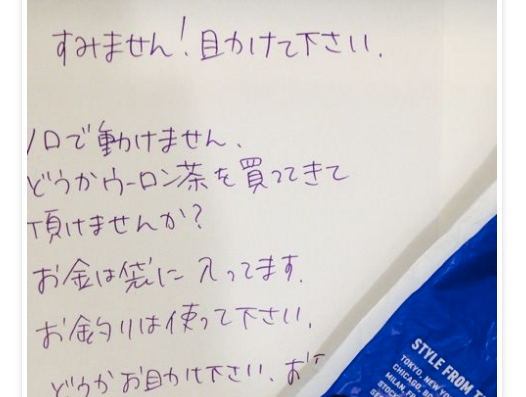 すみません！助けて下さい.
ノロで動けません、
どうかウーロン茶を買ってきて
頂けませんか？
お金は袋に入ってます.
お釣りは使って下さい.
どうかお助け下さい. お
STYLE FROM
TOKYO, NEW
CHICAGO,
MILAN,